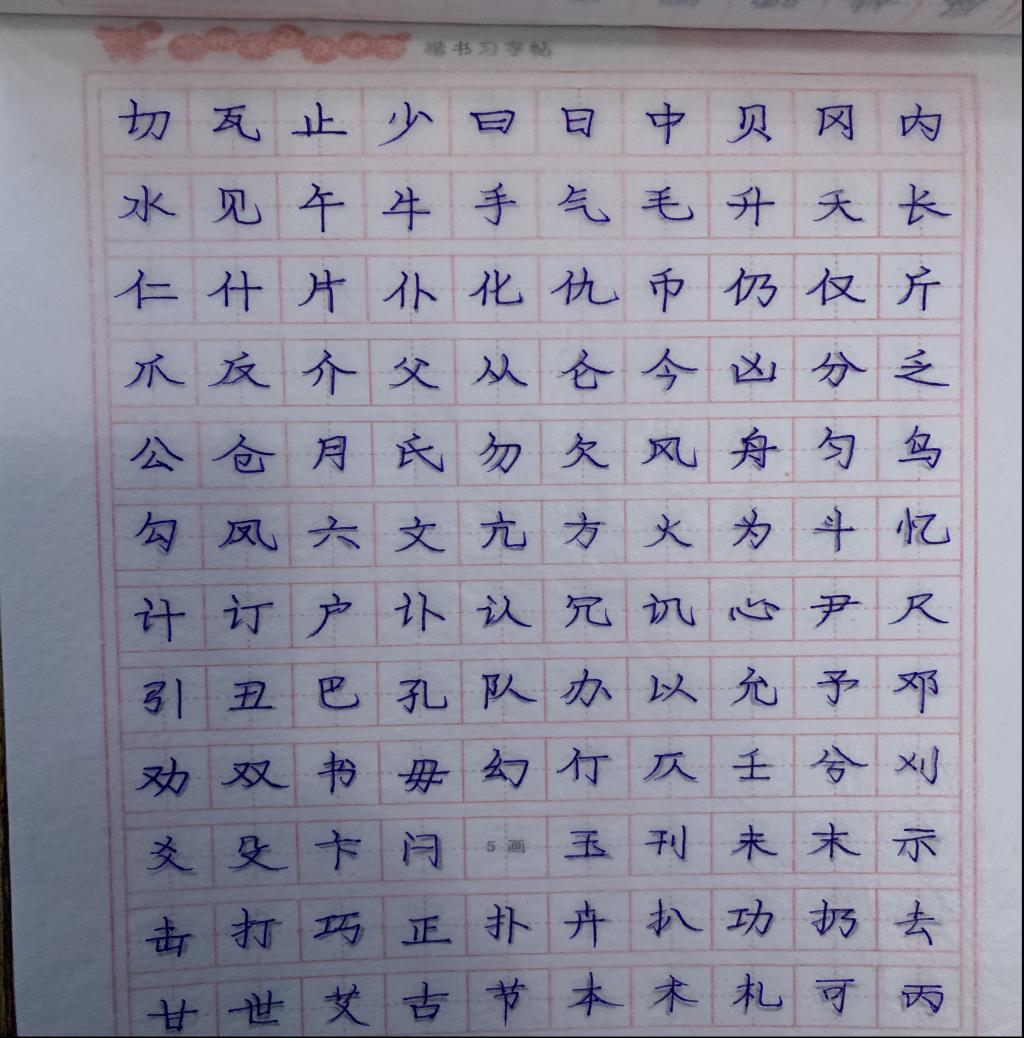 楷书习字帖
切瓦止少曰日中贝冈内
水见午牛手气毛升夭长
仁什片仆化仇币仍仅斤
爪反介父从仑今凶分乏
公仓月氏勿欠风丹匀鸟
勾凤六文亢方火为斗忆
计订户讣认冗讥心尹尺
引丑巴孔队办以允予邓
劝双书毋幻仃仄壬兮刈
爻殳卞闩5画玉刊未末示
击打巧正扑卉扒功扔去
甘世艾古节本术札可丙